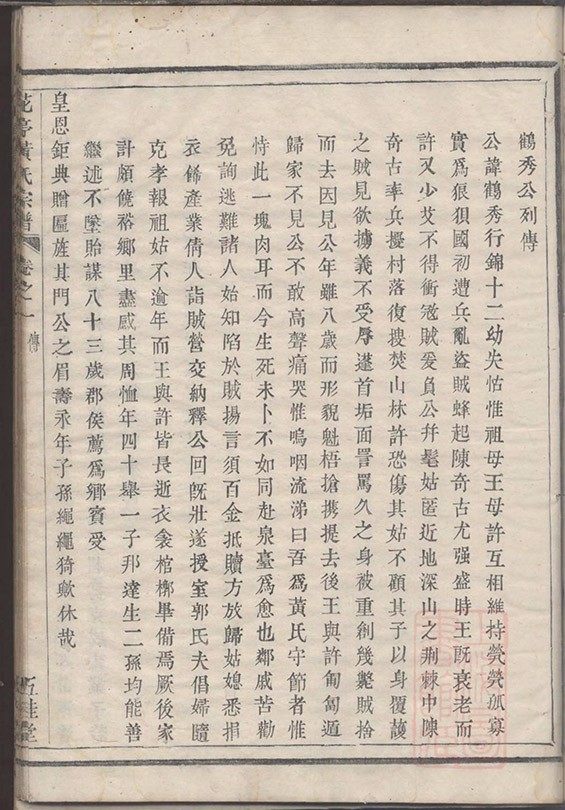 鶴秀公列傳
公諱鶴秀行錦十二幼失怙惟祖母王母許互相維持煢煢孤寡
實爲狼狽國初遭兵亂盜賊蜂起陳奇古尤强盛時王既衰老而
許又少艾不得衝冦賊爰負公幷髦姑匿近地深山之荆棘中陳
奇古率兵擾村落復搜焚山林許恐傷其姑不顧其子以身覆護
之賊見欲擄義不受辱蓬首垢面詈罵久之身被重創幾斃賊捨
而去因見公年雖八歲而形貌魁梧搶携提去後王與許匍匐遁
歸家不見公不敢高聲痛哭惟嗚咽流涕曰吾爲黃氏守節者惟
恃此一塊肉耳而今生死未卜不如同赴泉臺爲愈也鄰戚苦勸
免詢逃難諸人始知陷於賊揚言須百金抵贖方放歸姑媳悉捐
衣餙產業倩人詣賊營交納釋公回旣壯遂授室郭氏夫倡婦隨
克孝報祖姑不逾年而王與許皆長逝衣衾棺槨畢備焉厥後家
計頗饒裕鄉里盡感其周恤年四十舉一子邦達生二孫均能善
繼述不墜貽謀八十三歲郡侯薦爲鄉賓受
皇恩鉅典贈匾旌其門公之眉壽永年子孫繩繩猗歟休哉
花亭黃氏宗譜
卷之一
傳
五桂堂